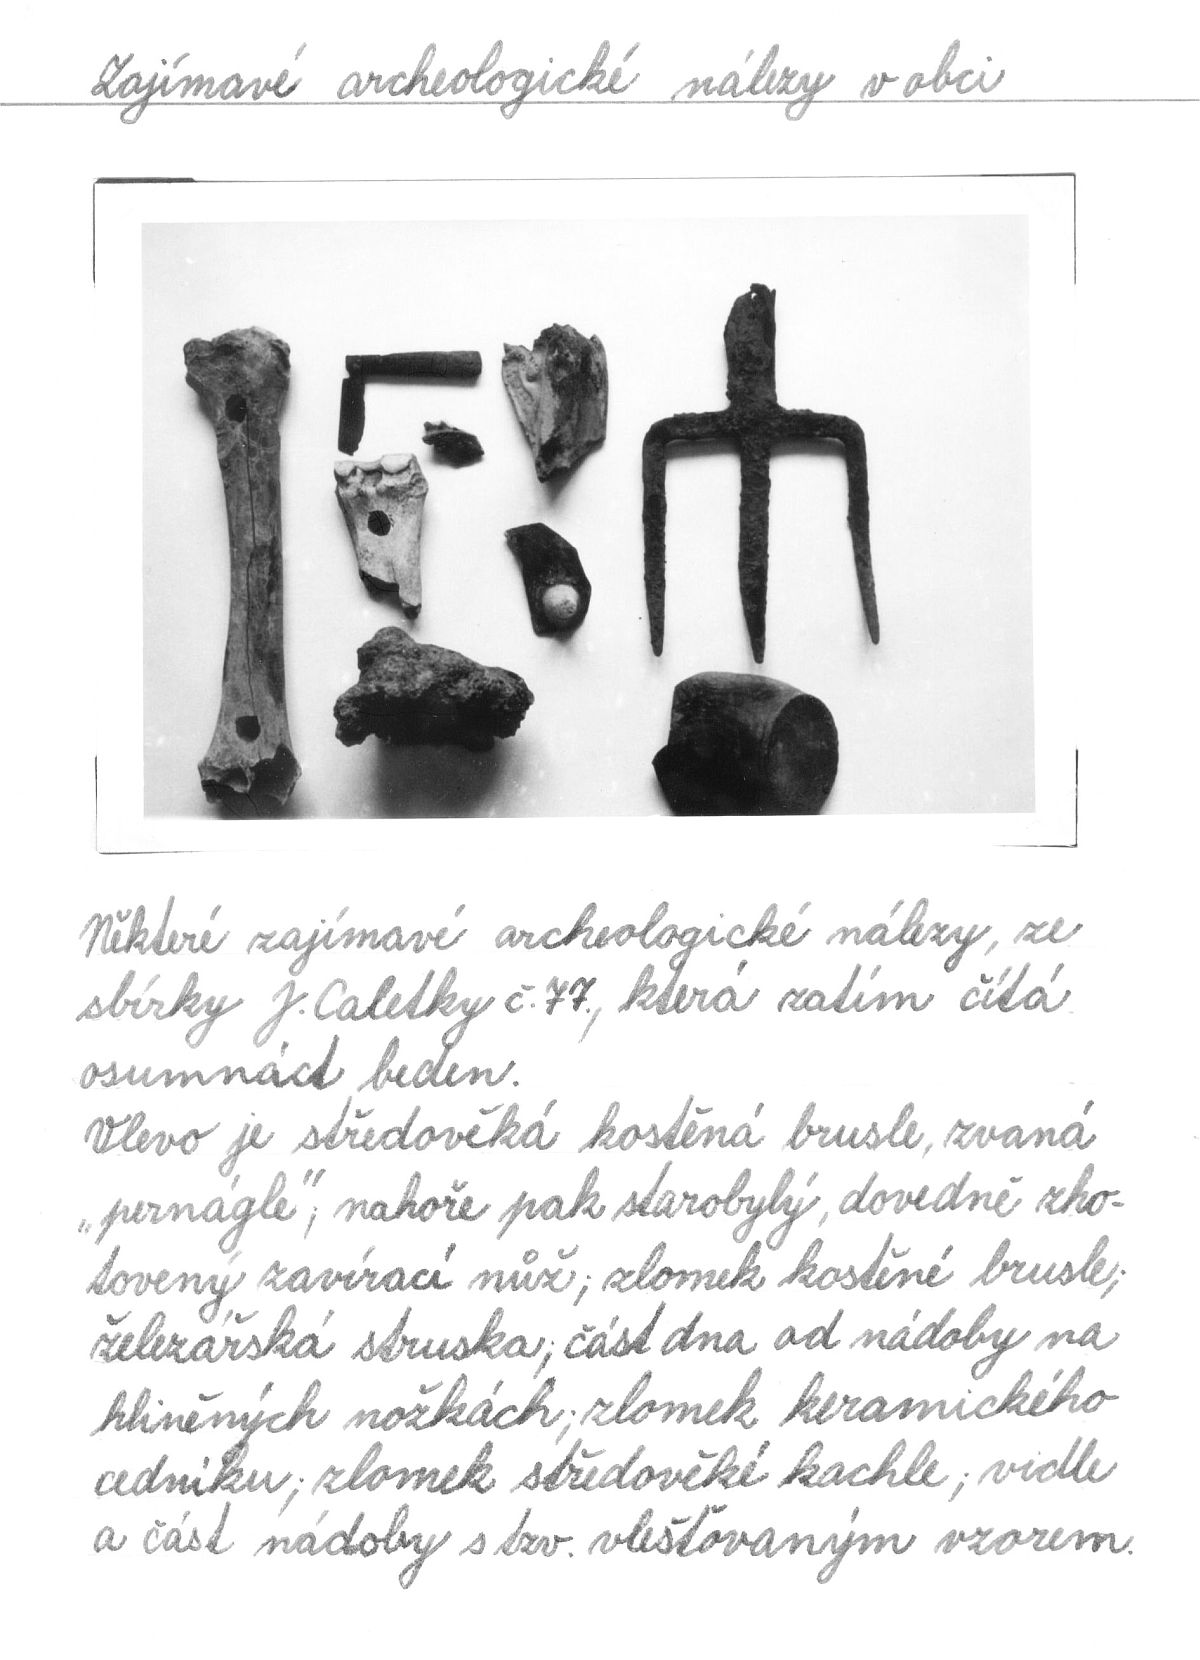 Zajímavé archeologické nálezy v obci
Některé zajímavé archeologické nálezy, ze
sbírky J. Caletky č. 77., která zatím čítá
osumnáct beden.
Vlevo je středověká kostěná brusle, zvaná
„pernágle“; nahoře pak starobylý, dovedně zho-
tovený zavírací nůž; zlomek kostěné brusle;
želézářská struska; část dna od nádoby na
hliněných nožkách; zlomek keramického
cedníku; zlomek středověké kachle; vidle
a část nádoby s tzv. vlešťovaným vzorem.